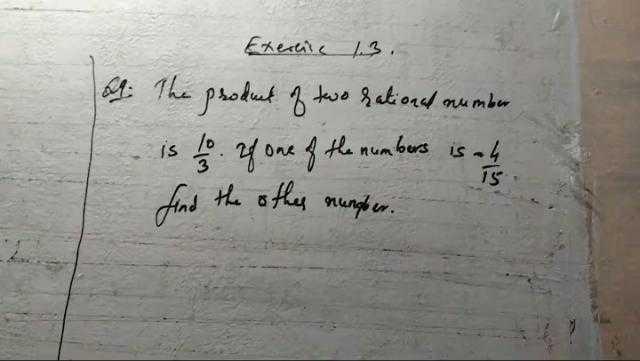 Exercise 1.3.
Q9: The product of two rational number
is 10/3. If one of the numbers is -4/15
find the other number.